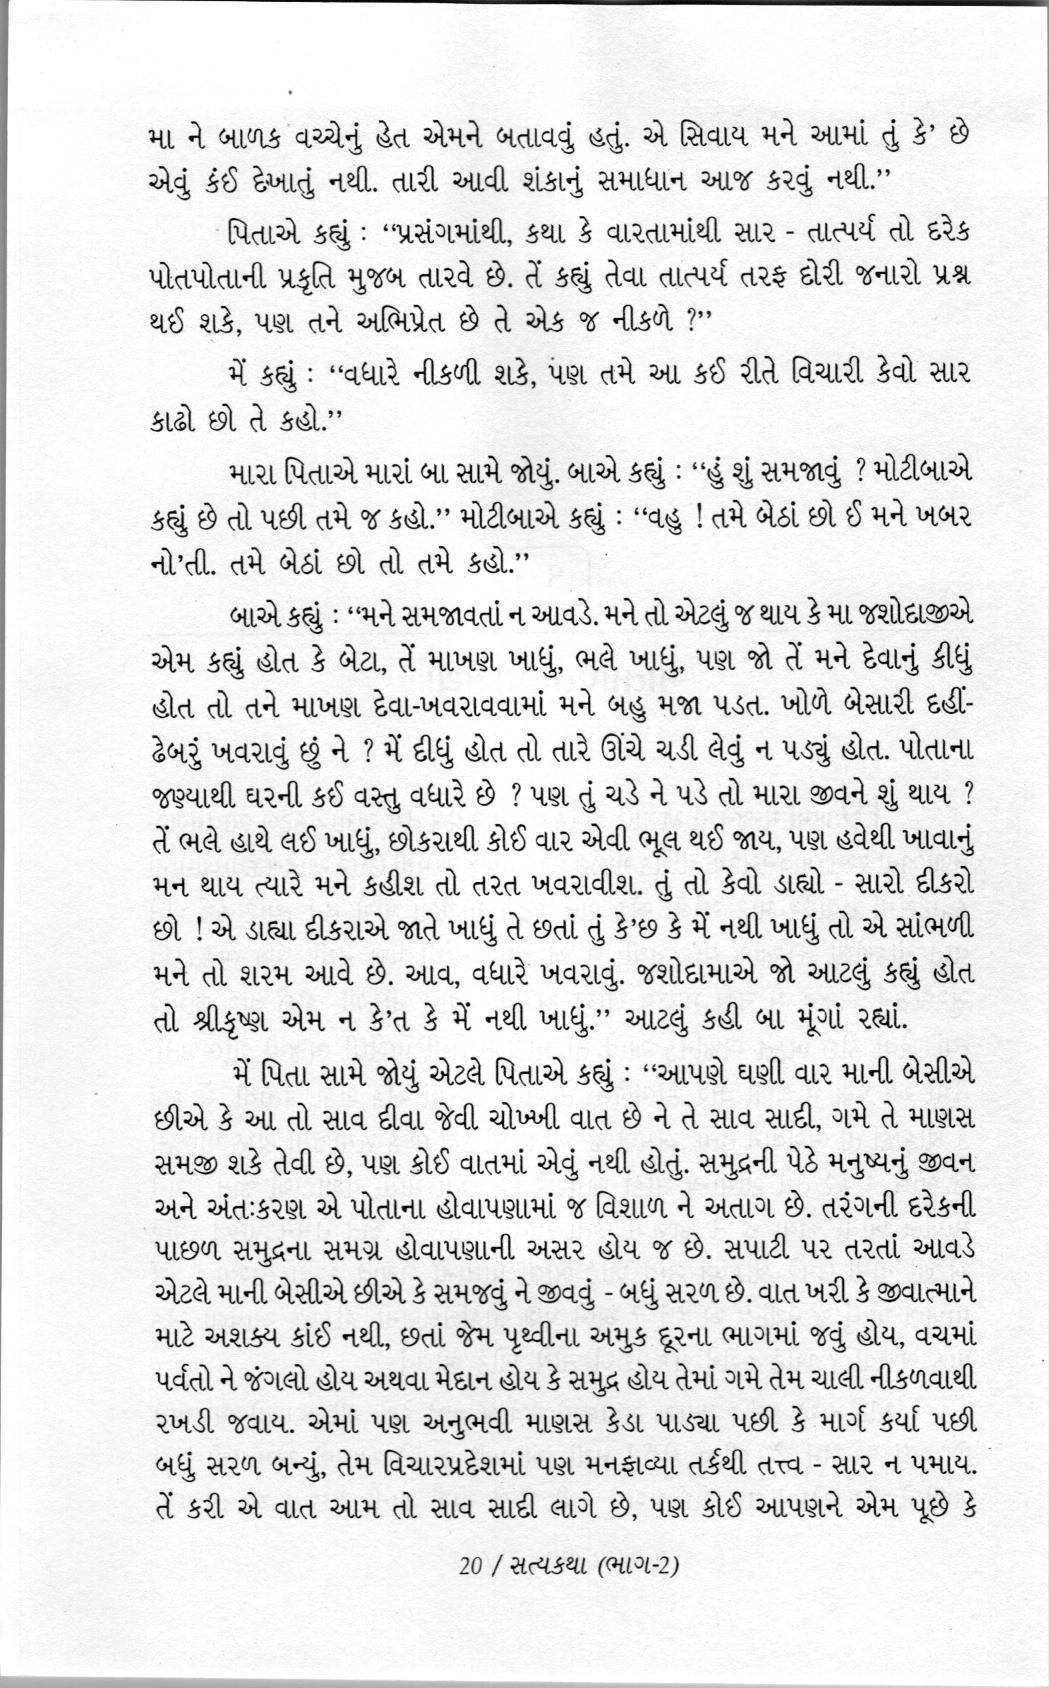 મા ને બાળક વચ્ચેનું હેત એમને બતાવવું હતું. એ સિવાય મને આમાં તું કે' છે
એવું કંઈ દેખાતું નથી. તારી આવી શંકાનું સમાધાન આજ કરવું નથી.''
પિતાએ કહ્યું : ''પ્રસંગમાંથી, કથા કે વારતામાંથી સાર - તાત્પર્ય તો દરેક
પોતપોતાની પ્રકૃતિ મુજબ તારવે છે. તેં કહ્યું તેવા તાત્પર્ય તરફ દોરી જનારો પ્રશ્ન
થઈ શકે, પણ તને અભિપ્રેત છે તે એક જ નીકળે ?''
મેં કહ્યું : ''વધારે નીકળી શકે, પણ તમે આ કઈ રીતે વિચારી કેવો સાર
કાઢો છો તે કહો.''
મારા પિતાએ મારાં બા સામે જોયું. બાએ કહ્યું : ''હું શું સમજાવું ? મોટીબાએ
કહ્યું છે તો પછી તમે જ કહો.'' મોટીબાએ કહ્યું : ''વહુ ! તમે બેઠાં છો ઈ મને ખબર
નો'તી. તમે બેઠાં છો તો તમે કહો.''
બાએ કહ્યું : ''મને સમજાવતાં ન આવડે. મને તો એટલું જ થાય કે મા જશોદાજીએ
એમ કહ્યું હોત કે બેટા, તેં માખણ ખાધું, ભલે ખાધું, પણ જો તેં મને દેવાનું કીધું
હોત તો તને માખણ દેવા-ખવરાવવામાં મને બહુ મજા પડત. ખોળે બેસારી દહીં-
ઢેબરું ખવરાવું છું ને ? મેં દીધું હોત તો તારે ઊંચે ચડી લેવું ન પડ્યું હોત. પોતાના
જણ્યાથી ઘરની કઈ વસ્તુ વધારે છે ? પણ તું ચડે ને પડે તો મારા જીવને શું થાય ?
તેં ભલે હાથે લઈ ખાધું, છોકરાથી કોઈ વાર એવી ભૂલ થઈ જાય, પણ હવેથી ખાવાનું
મન થાય ત્યારે મને કહીશ તો તરત ખવરાવીશ. તું તો કેવો ડાહ્યો - સારો દીકરો
છો ! એ ડાહ્યા દીકરાએ જાતે ખાધું તે છતાં તું કે'છ કે મેં નથી ખાધું તો એ સાંભળી
મને તો શરમ આવે છે. આવ, વધારે ખવરાવું. જશોદામાએ જો આટલું કહ્યું હોત
તો શ્રીકૃષ્ણ એમ ન કે'ત કે મેં નથી ખાધું.'' આટલું કહી બા મૂંગાં રહ્યાં.
મેં પિતા સામે જોયું એટલે પિતાએ કહ્યું : ''આપણે ઘણી વાર માની બેસીએ
છીએ કે આ તો સાવ દીવા જેવી ચોખ્ખી વાત છે ને તે સાવ સાદી, ગમે તે માણસ
સમજી શકે તેવી છે, પણ કોઈ વાતમાં એવું નથી હોતું. સમુદ્રની પેઠે મનુષ્યનું જીવન
અને અંતઃકરણ એ પોતાના હોવાપણામાં જ વિશાળ ને અતાગ છે. તરંગની દરેકની
પાછળ સમુદ્રના સમગ્ર હોવાપણાની અસર હોય જ છે. સપાટી પર તરતાં આવડે
એટલે માની બેસીએ છીએ કે સમજવું ને જીવવું - બધું સરળ છે. વાત ખરી કે જીવાત્માને
માટે અશક્ય કાંઈ નથી, છતાં જેમ પૃથ્વીના અમુક દૂરના ભાગમાં જવું હોય, વચમાં
પર્વતો ને જંગલો હોય અથવા મેદાન હોય કે સમુદ્ર હોય તેમાં ગમે તેમ ચાલી નીકળવાથી
રખડી જવાય. એમાં પણ અનુભવી માણસ કેડા પાડ્યા પછી કે માર્ગ કર્યા પછી
બધું સરળ બન્યું, તેમ વિચારપ્રદેશમાં પણ મનફાવ્યા તર્કથી તત્ત્વ - સાર ન પમાય.
તેં કરી એ વાત આમ તો સાવ સાદી લાગે છે, પણ કોઈ આપણને એમ પૂછે કે
20 / સત્યકથા (ભાગ-2)